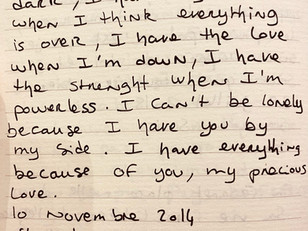 when I think everything
is over, I have the love
when I'm down, I have
the strenght when I'm
powerless. I can't be lonely
because I have you by
my side. I have everything
because of you, my precious
Love.
10 Novembre 2014